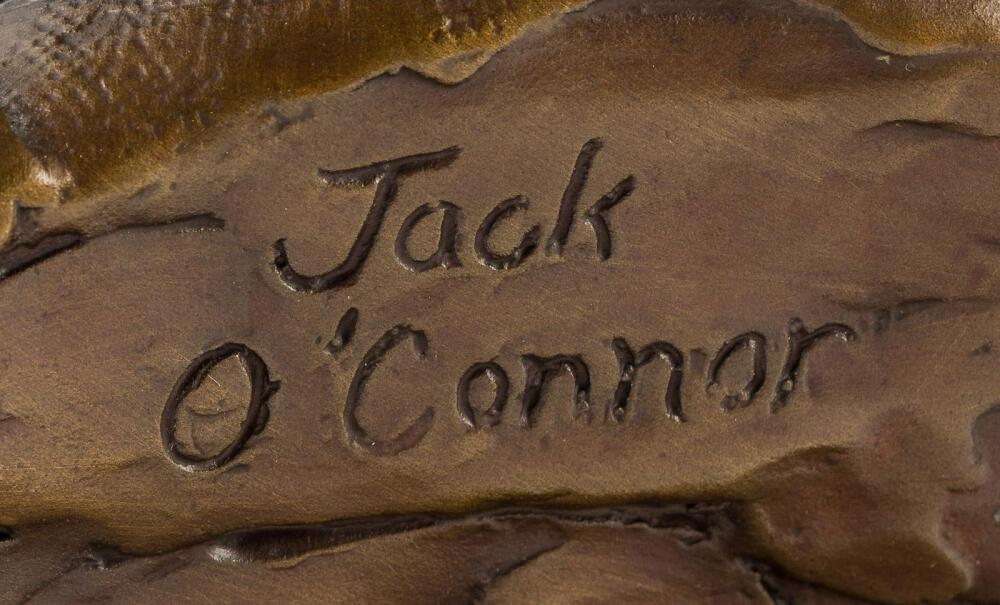 Jack
O'Connor